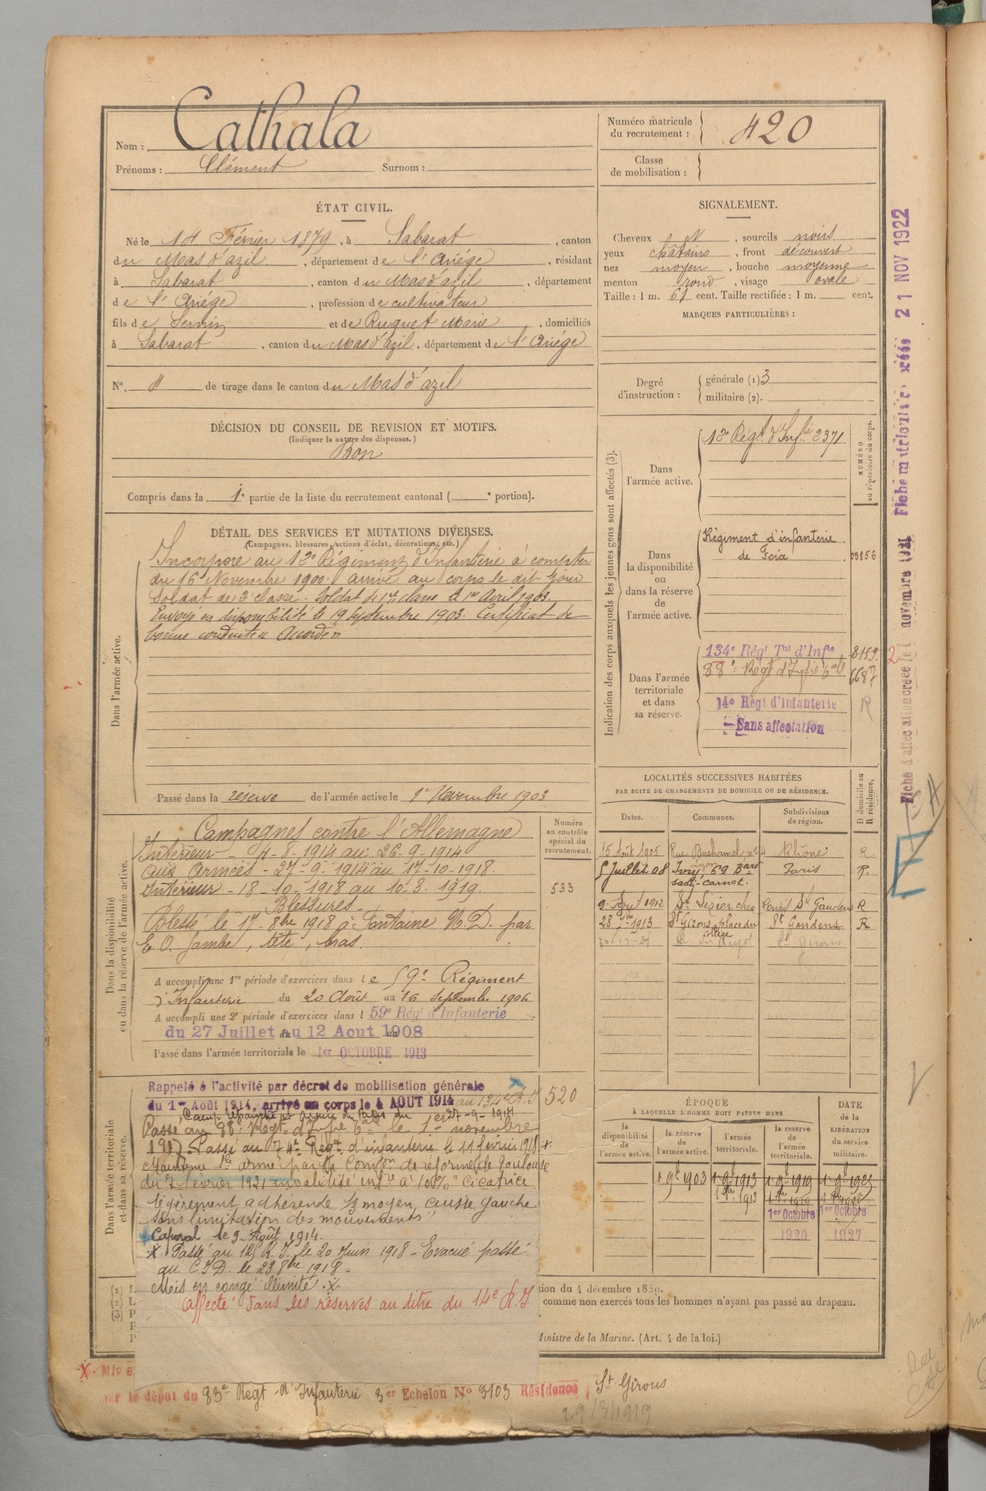 Nom : Cathala
Prénoms : Clément Surnom :
Numéro matricule du recrutement : 420
Classe de mobilisation :
ÉTAT CIVIL.
Né le 14 Février 1879, à Sabarat, canton
du Mas d'azil, département de l'Ariège, résidant
à Sabarat, canton du Mas d'azil, département
de l'Ariège, profession de cultivateur
fils de Sernin et de Ruquet Marie, domiciliés
à Sabarat, canton du Mas d'azil, département de l'Ariège
N°. de tirage dans le canton du Mas d'azil
SIGNALEMENT.
Cheveux N, sourcils noirs
yeux châtains, front découvert
nez moyen, bouche moyenne
menton rond, visage ovale
Taille : 1 m. 61 cent. Taille rectifiée : 1 m. cent.
MARQUES PARTICULIÈRES :
Degré d'instruction : générale (1) 3
militaire (2).
DÉCISION DU CONSEIL DE REVISION ET MOTIFS.
(Indiquer la nature des dispenses.)
Bon
Compris dans la 1e partie de la liste du recrutement cantonal ( e portion).
DÉTAIL DES SERVICES ET MUTATIONS DIVERSES.
(Campagnes, blessures, actions d'éclat, décorations, etc.)
Dans l'armée active.
Incorporé au 12e Régiment d'Infanterie à compter
du 16 Novembre 1900. arrivé au corps le dit jour
Soldat de 2e classe. Soldat de 1re classe le 1er Avril 1903.
Envoyé en disponibilité le 19 Septembre 1903. Certificat de
bonne conduite « Accordé »
Passé dans la réserve de l'armée active le 1er Novembre 1903
Indication des corps auxquels les jeunes gens sont affectés (3).
NUMÉRO au répertoire du corps.
Dans l'armée active.
12e Régt d'Infie 2371
Dans la disponibilité ou dans la réserve de l'armée active.
Régiment d'infanterie
de Foix 03856
Dans l'armée territoriale et dans sa réserve.
134e Rég' Tal d'Infie 8159
88e Régt d'Infie 6687
14e Régt d'Infanterie R
Sans affectation
Fiche matriculaire créée 21 NOV 1922
LOCALITÉS SUCCESSIVES HABITÉES
PAR SUITE DE CHANGEMENTS DE DOMICILE OU DE RÉSIDENCE.
D domicile ou R résidence.
Dates. Communes. Subdivisions de région.
15 Août 1905 Rhône R
5 Juillet 08 Ivry, 89 Bard Sadi-Carnot. Paris
9 Août 1912 St Lizier St Gaudens R
28 1913 St Girons, place du collège St Gaudens R
Dans la disponibilité ou dans la réserve de l'armée active.
Numéro au contrôle spécial du recrutement.
533
Campagnes contre l'Allemagne
Intérieur - 4-8-1914 au 26-9-1914
aux Armées - 27-9-1914 au 17-10-1918.
Intérieur - 18-10-1918 au 10-3-1919.
Blessures
Blessé le 17 8bre 1918 à Fontaine N. D. par
E. O. jambe, tête, bras.
A accompli une 1re période d'exercices dans le 59e Régiment
d'Infanterie du 20 Août au 16 Septembre 1906
A accompli une 2e période d'exercices dans l 59e Rég' d'Infanterie
du 27 Juillet au 12 Aout 1908
Passé dans l'armée territoriale le 1er OCTOBRE 1913
Dans l'armée territoriale et dans sa réserve.
520
Rappelé à l'activité par décret de mobilisation générale
du 1er Août 1914, arrivé au corps le 4 AOUT 1914 au 134e R.I
27-9-1914
Passé au 88e Régt d'Infie le 1er novembre
1917. Passé au 174e Régt d'infanterie le 11 février 1918 +
Maintenu Sce armé par la Comon de réforme de Toulouse
du 7 février 1921 invalidité infre à 10% " Cicatrice
légèrement adhérente 1/3 moyen, cuisse gauche
sans limitation des mouvements"
Caporal le 3 Août 1914.
x Passé au 125 R.I. le 20 Juin 1918 - Evacué passé
au C.I.D. le 23 8bre 1918 -
Mis en congé illimité
Affecté dans les réserves au titre du 14e R.I
ÉPOQUE
À LAQUELLE L'HOMME DOIT PASSER DANS
DATE DE LA LIBÉRATION du service militaire.
la disponibilité de l'armée active. la réserve de l'armée active. l'armée territoriale. la réserve de l'armée territoriale.
1 9bre 1903 1 9bre 1913 1 9bre 1919 1 9bre 1925
1er Octobre 1920
1er Octobre 1927
tion du 4 décembre 1889.
comme non exercés tous les hommes n'ayant pas passé au drapeau.
Ministre de la Marine. (Art. 4 de la loi.)
le dépôt du 83e Régt d'Infanterie 3er Echelon N° 3103 Résidence St Girons
29/3/1919